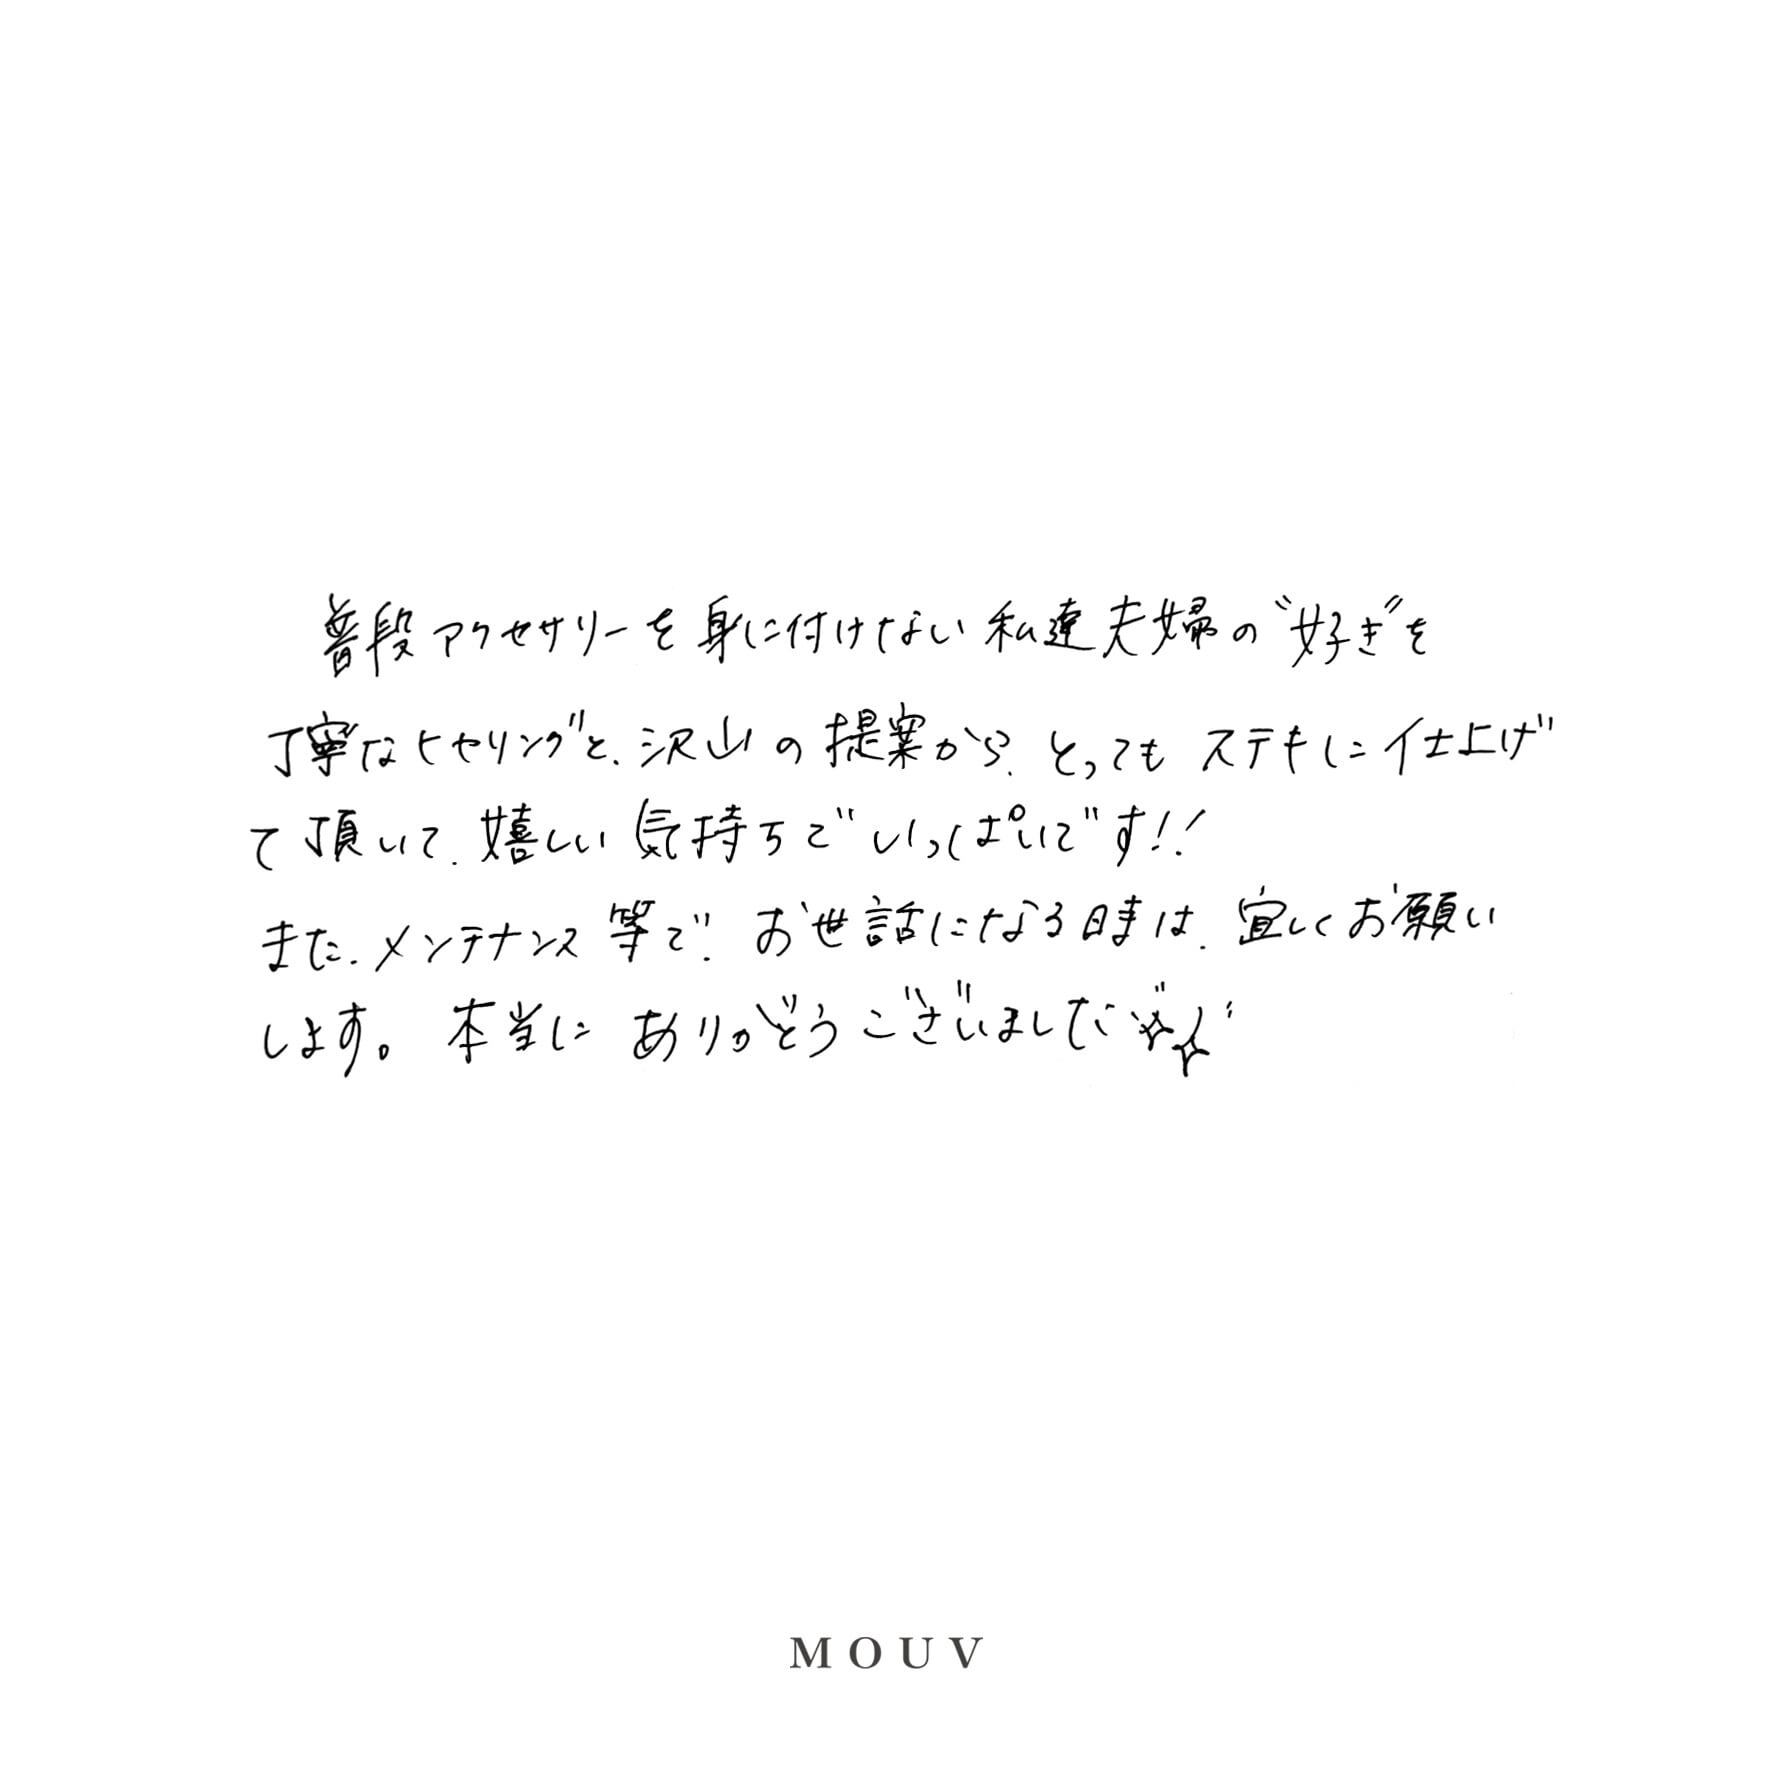 普段アクセサリーを身に付けない私達夫婦の"好き"を
丁寧なヒヤリングと、沢山の提案から、とってもステキに仕上げ
て頂いて、嬉しい気持ちでいっぱいです!!
また、メンテナンス等で、お世話になる時は、宜しくお願い
します。本当にありがとうございました
MOUV